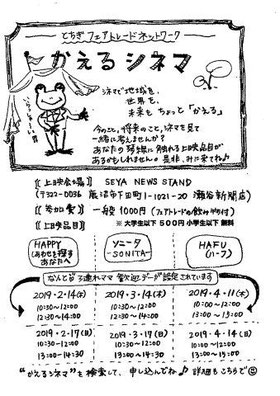 とちぎフェアトレードネットワーク
かえるシネマ
いらっしゃーい!
シネマで地域を、
世界も、
未来もちょっと「かえる」
今のこと、将来のこと、シネマを見て
一緒に考えませんか?
あなたの琴線に触れる上映品目が
あるかもしれません。是非、みに来てね♪
〖上映会場〗 SEYA NEWS STAND
(〒322-0036 鹿沼市下田町1-1021-20 瀬谷新聞店)
〖参加費〗 一般 1000円 (フェアトレードの飲み物付)
※大学生以下500円 小学生以下 無料
〖上映品目〗
HAPPY
(しあわせを探す
あなたへ)
ソニータ
-SONITA-
HAFU
(ハーフ)
なんと皆 子連れママ 歓迎デーが設定されています
2019・2・14(木)
10:30〜12:00
12:30〜14:00
2019・3・14(木)
10:30〜12:00
12:30〜14:00
2019・4・11(木)
10:00〜12:00
13:00〜
2019・2・17(日)
10:30〜12:00
13:00〜14:30
2019・3・17(日)
10:30〜12:00
13:00〜14:30
2019・4・14(日)
10:00〜12:00
13:00〜
"かえるシネマ"を検索して、申し込んでね♪ 詳細もこちらで